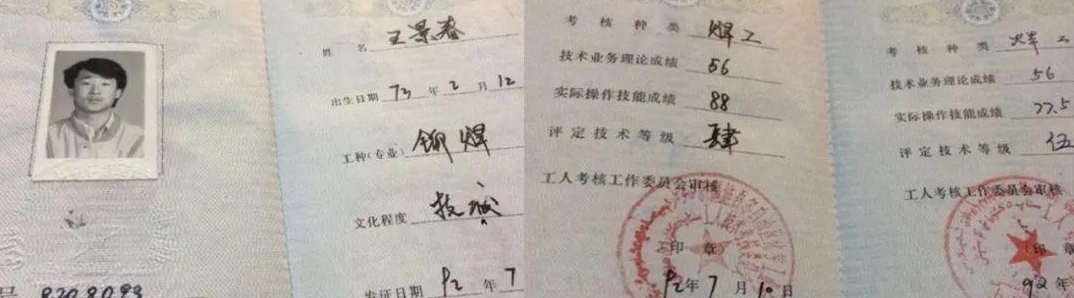 号 8208093
姓名 王景春
出生日期 73 年 2 月 12
工种(专业) 铆焊
文化程度 技
发证日期 92 年 7
考核种类 焊工
技术业务理论成绩 56
实际操作技能成绩 88
评定技术等级 肆
工人考核工作委员会审核
印章
92年 7月10日
考核种类 焊工
技术业务理论成绩 56
实际操作技能成绩 77.5
评定技术等级 伍
工人考核工作委员会审核
印章
92年